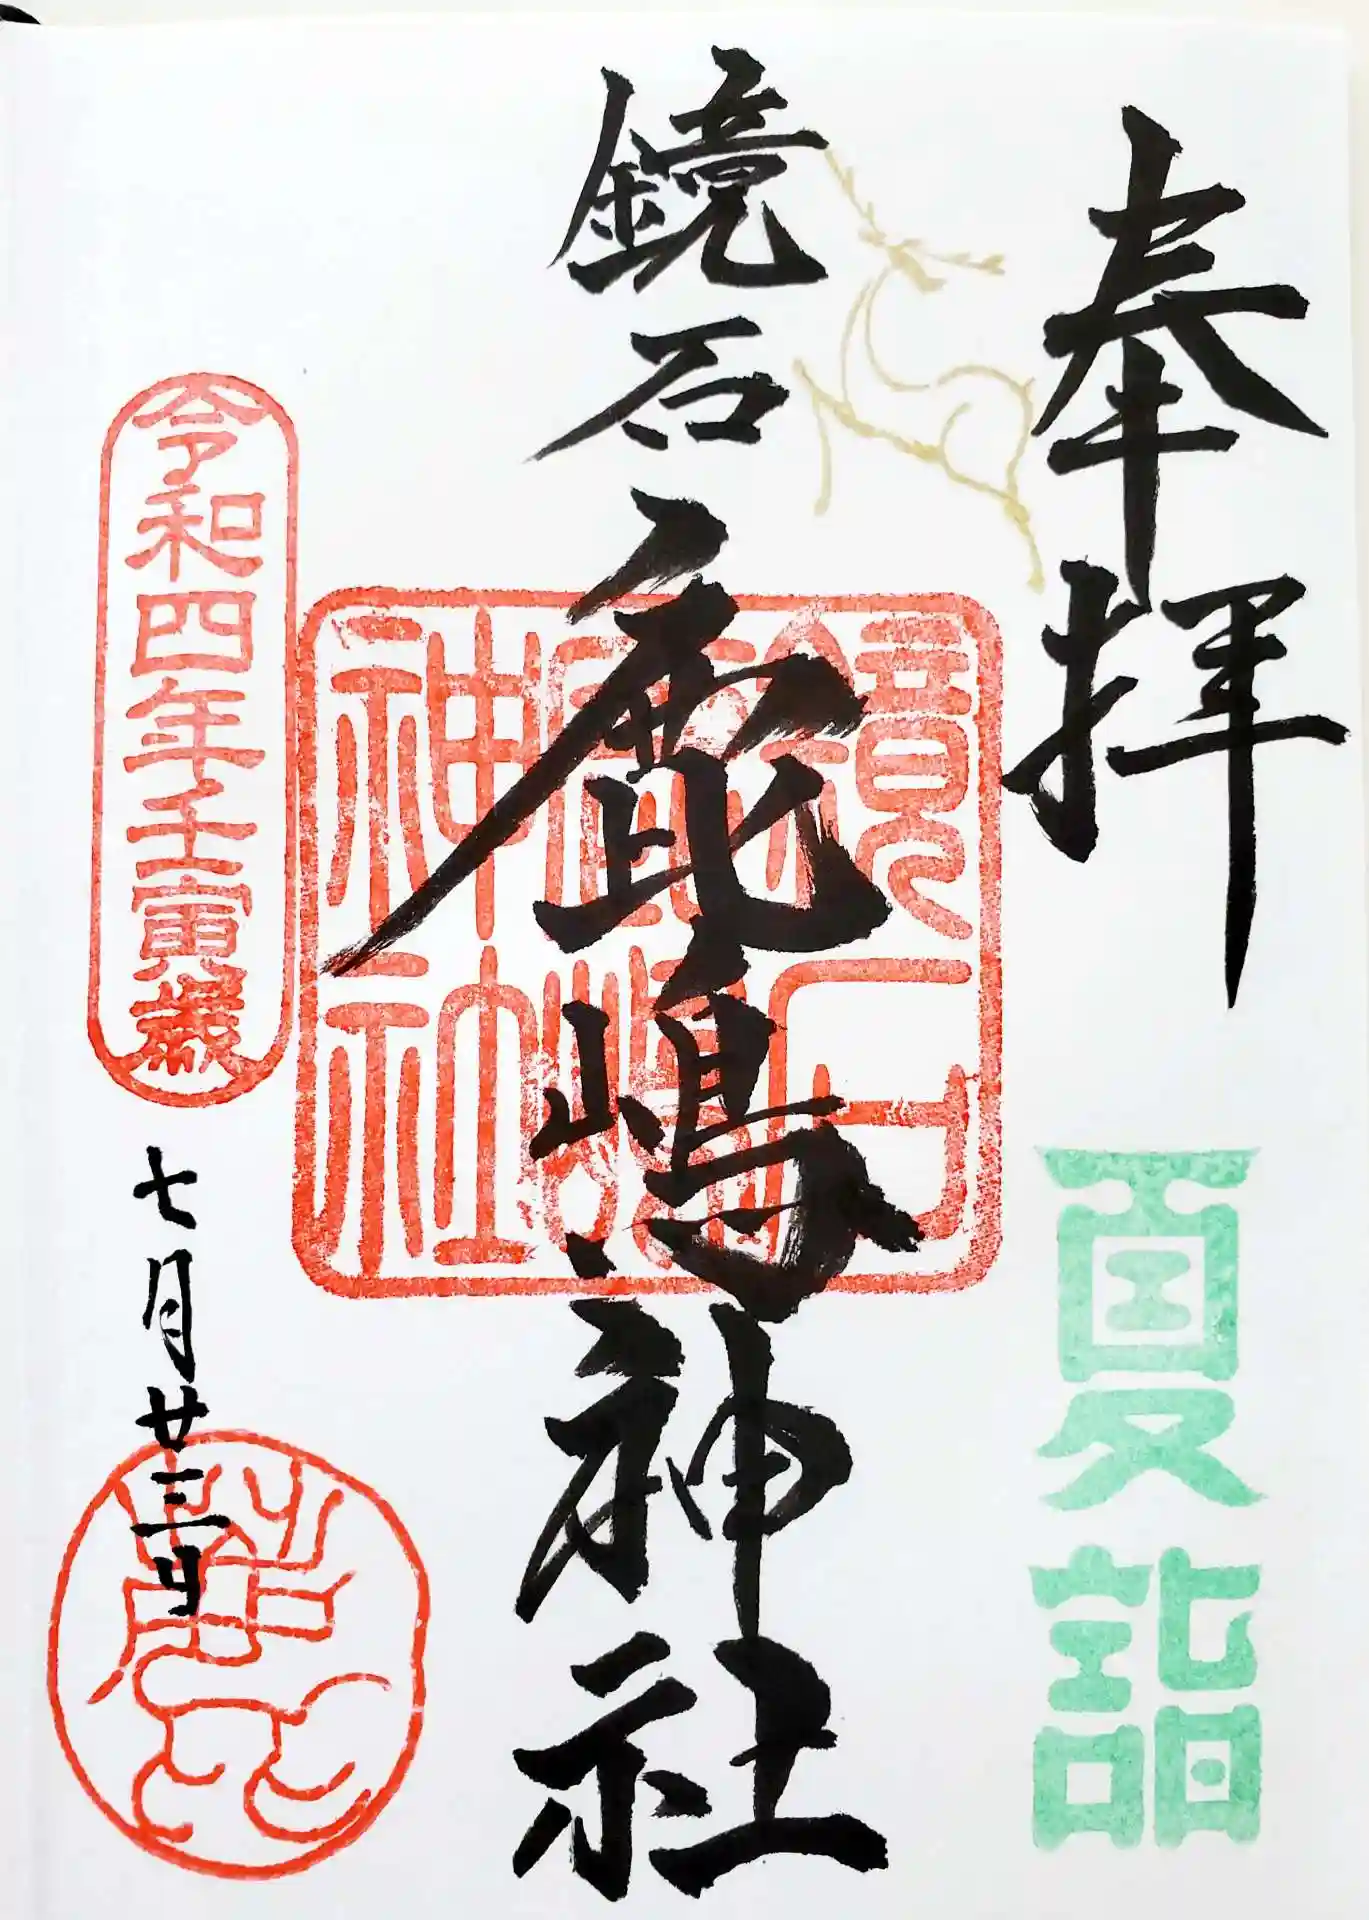 奉拝
夏詣
鏡石
鹿嶋神社
鏡石
鹿嶋
神社
令和四年壬寅歳
七月廿三日